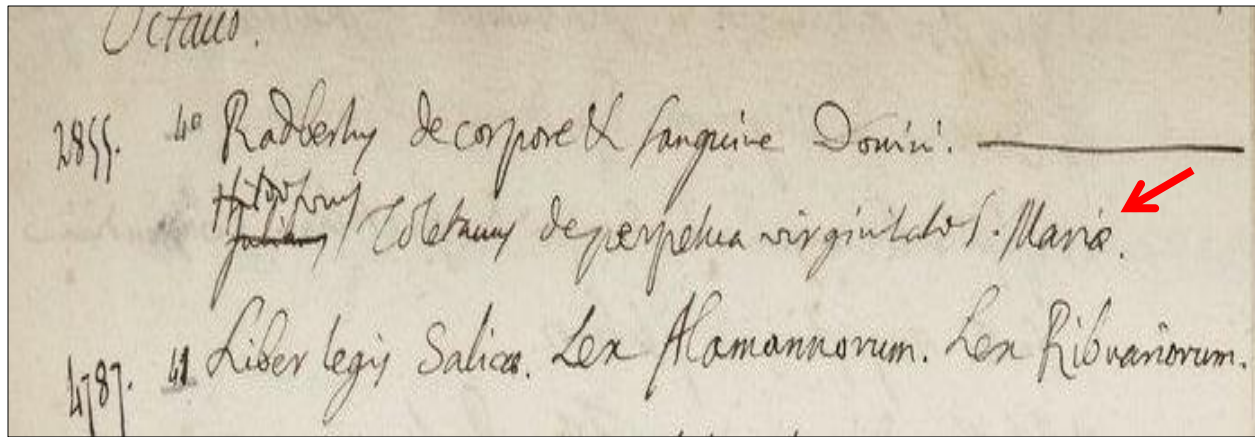 Octauo.
2855. 40 Radbertus de corpore & sanguine Domini.
Hildefonsus
Julianus Toletanus de perpetua virginitate S. Mariæ.
4787. 41 Liber legis Salicæ. Lex Alamannorum. Lex Ribuariorum.